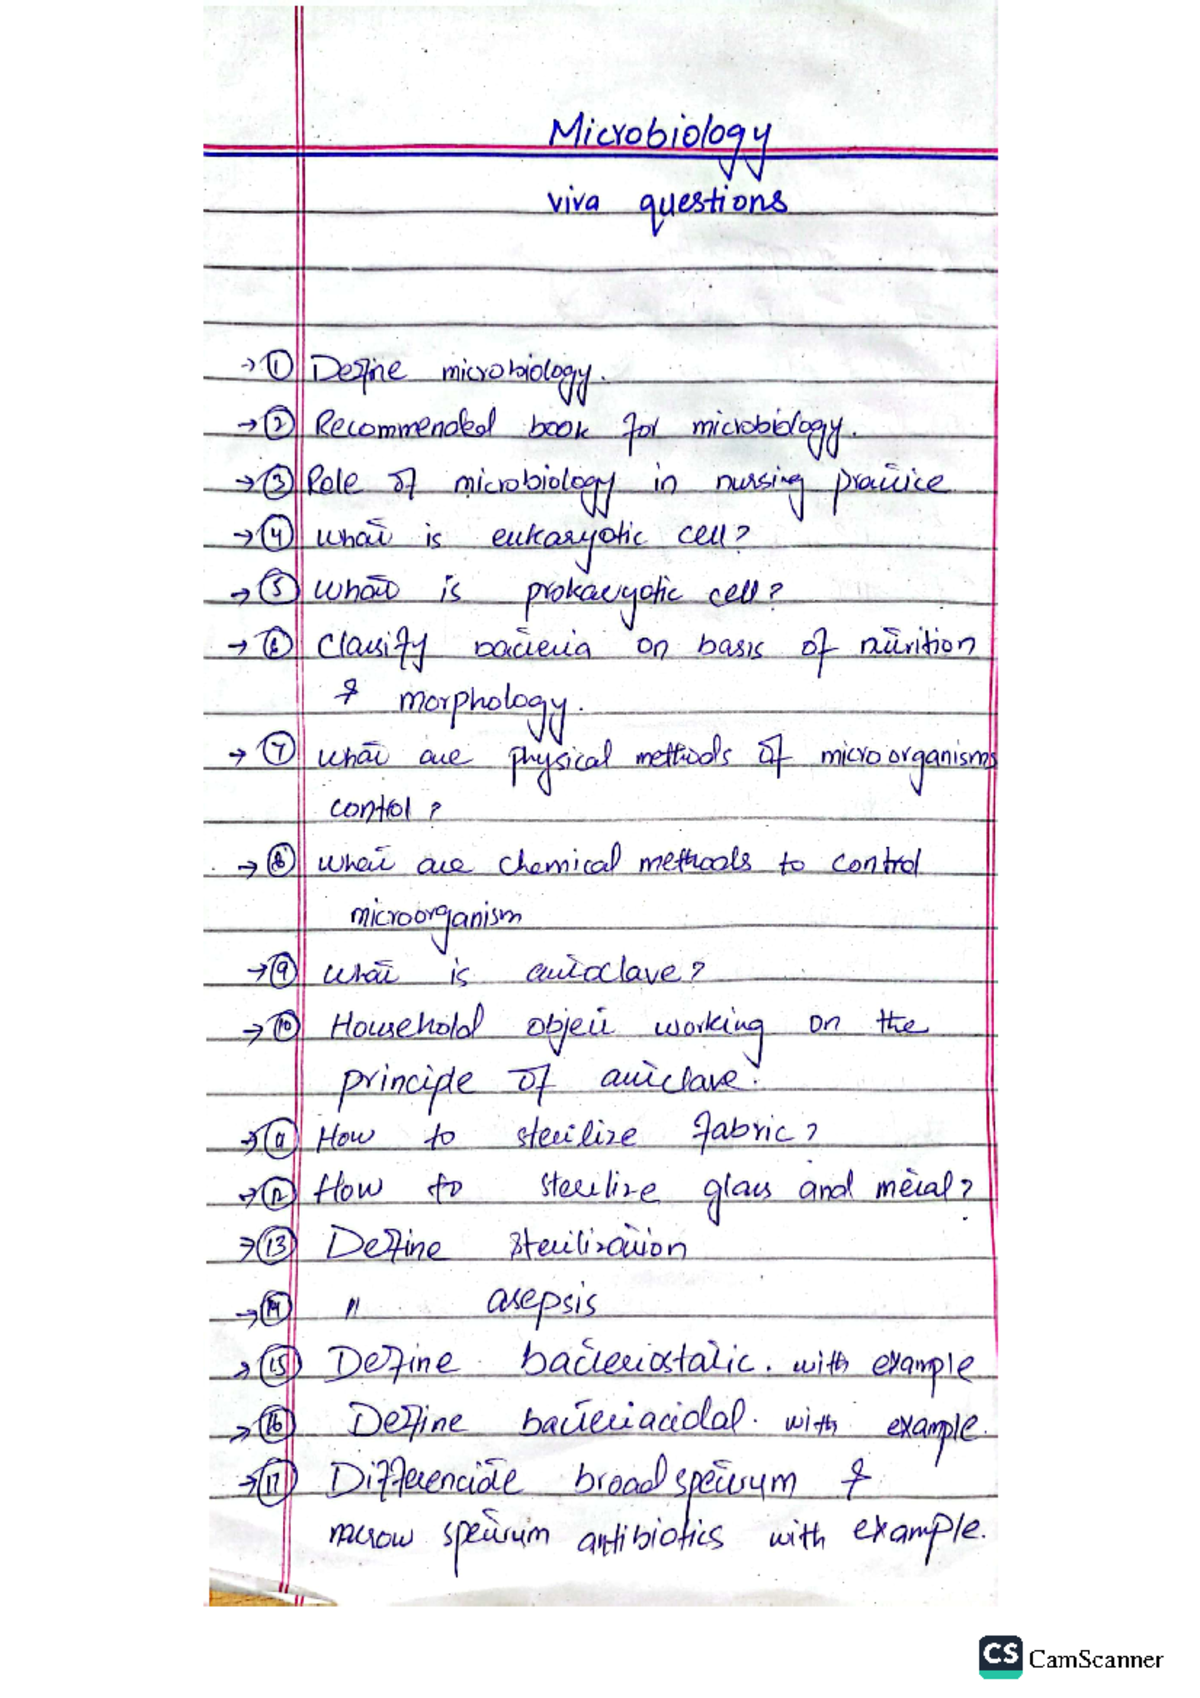 Microbiology
viva questions
→ ① Define microbiology.
→ ② Recommended book for microbiology.
→ ③ Role of microbiology in nursing practice
→ ④ what is eukaryotic cell?
→ ⑤ what is prokaryotic cell?
→ ⑥ Classify bacteria on basis of nutrition
& morphology.
→ ⑦ what are physical methods of microorganisms
control?
→ ⑧ what are chemical methods to control
microorganism
→ ⑨ what is autoclave?
→ ⑩ Household object working on the
principle of autclave.
→ ⑪ How to sterilize fabric?
→ ⑫ How to sterilize glass and metal?
→ ⑬ Define sterilization
→ ⑭ " asepsis
→ ⑮ Define bacteriostatic. with example
→ ⑯ Define bacteriacidal. with example.
→ ⑰ Differenciate broad spectrum &
narrow spectrum antibiotics with example.
CS CamScanner